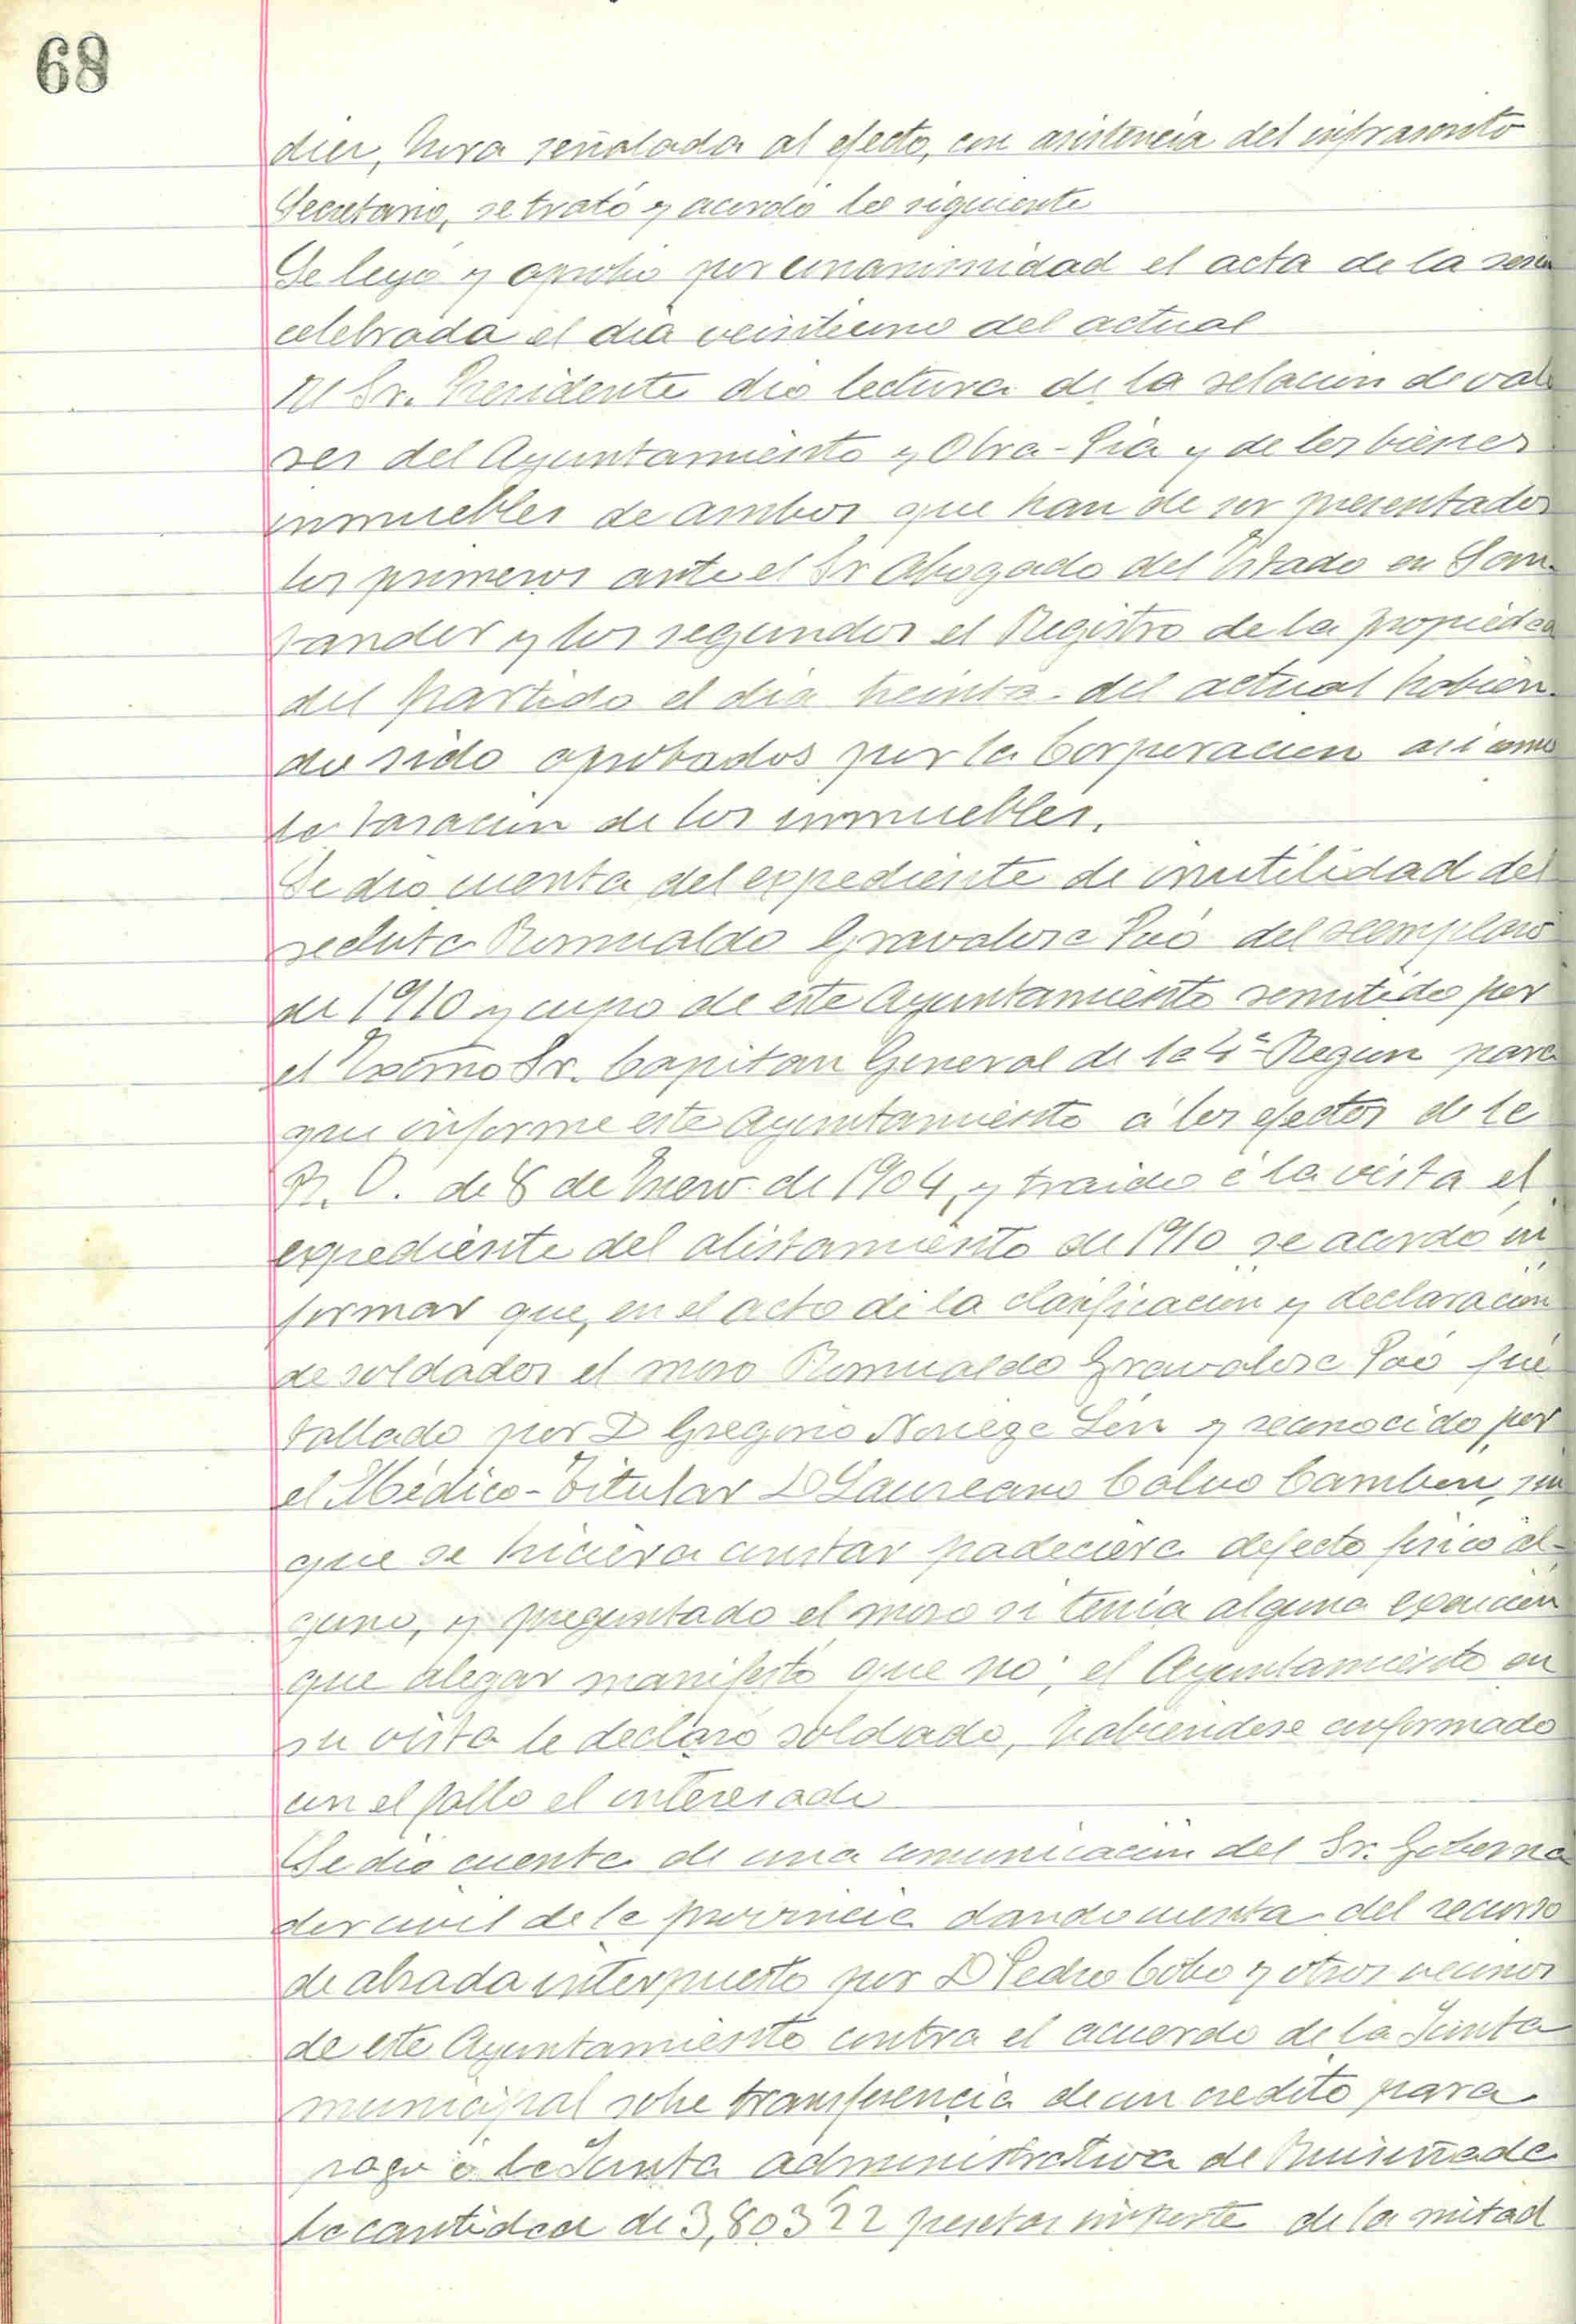 68
diez, hora señalada al efecto, con asistencia del infrascrito
Secretario, se trató y acordó lo siguiente
Se leyó y aprobó por unanimidad el acta de la sesión
celebrada el dia veintiuno del actual
El Sr. Presidente dió lectura de la relacion de valo
res del Ayuntamiento y Obra-Pia y de los bienes
inmuebles de ambos que han de ser presentados
los primeros ante el Sr Abogado del Estado en San-
tander y los segundos el Registro de la propiedad
del partido el dia treinta del actual habien-
do sido aprobados por la Corporacion asi como
la tasacion de los inmuebles.
Se dio cuenta del expediente de inutilidad del
recluta Romualdo del reemplazo
de 1910 y cupo de este Ayuntamiento remitido por
el Excmo Sr. Capitan General de la 4ª Region para
que informe este Ayuntamiento á los efectos de la
R. O. de 8 de Enero de 1904, y traido á la vista el
expediente del alistamiento de 1910 se acordó in
formar que, en el acto de la clasificacion y declaracion
de soldados el mozo Romualdo fué
tallado por D Gregorio Noriega y reconocido por
el Médico-Titular D Laureano Calvo sin
que se hiciera constar padeciera defecto fisico al-
guno, y preguntado el mozo si tenia alguna exencion
que alegar manifestó que no; el Ayuntamiento en
su vista le declaró soldado, habiendose conformado
con el fallo el interesado
Se dió cuenta de una comunicacion del Sr. Goberna
dor civil de la provincia dando cuenta del recurso
de alzada interpuesto por D Pedro Cobo y otros vecinos
de este Ayuntamiento contra el acuerdo de la Junta
municipal sobre transferencia de un credito para
pago á la Junta administrativa de Ruiseñada
la cantidad de 3,803'22 pesetas importe de la mitad